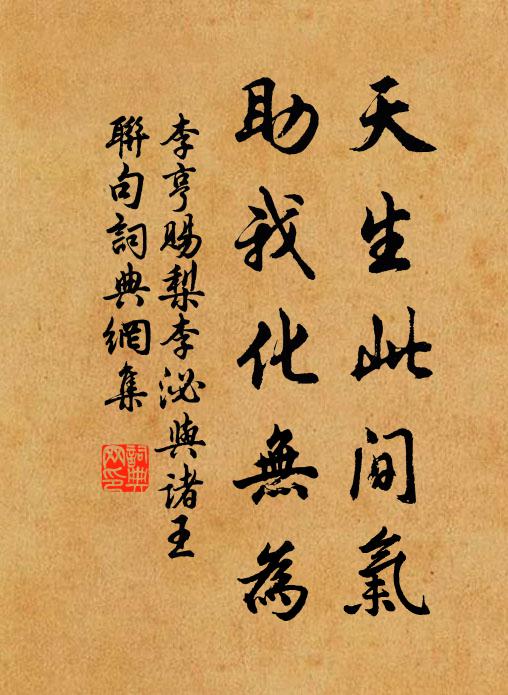 天生此间氣
助我化無為
李亨賜梨李泌與诸王
聯句詞典網集
詞典网印